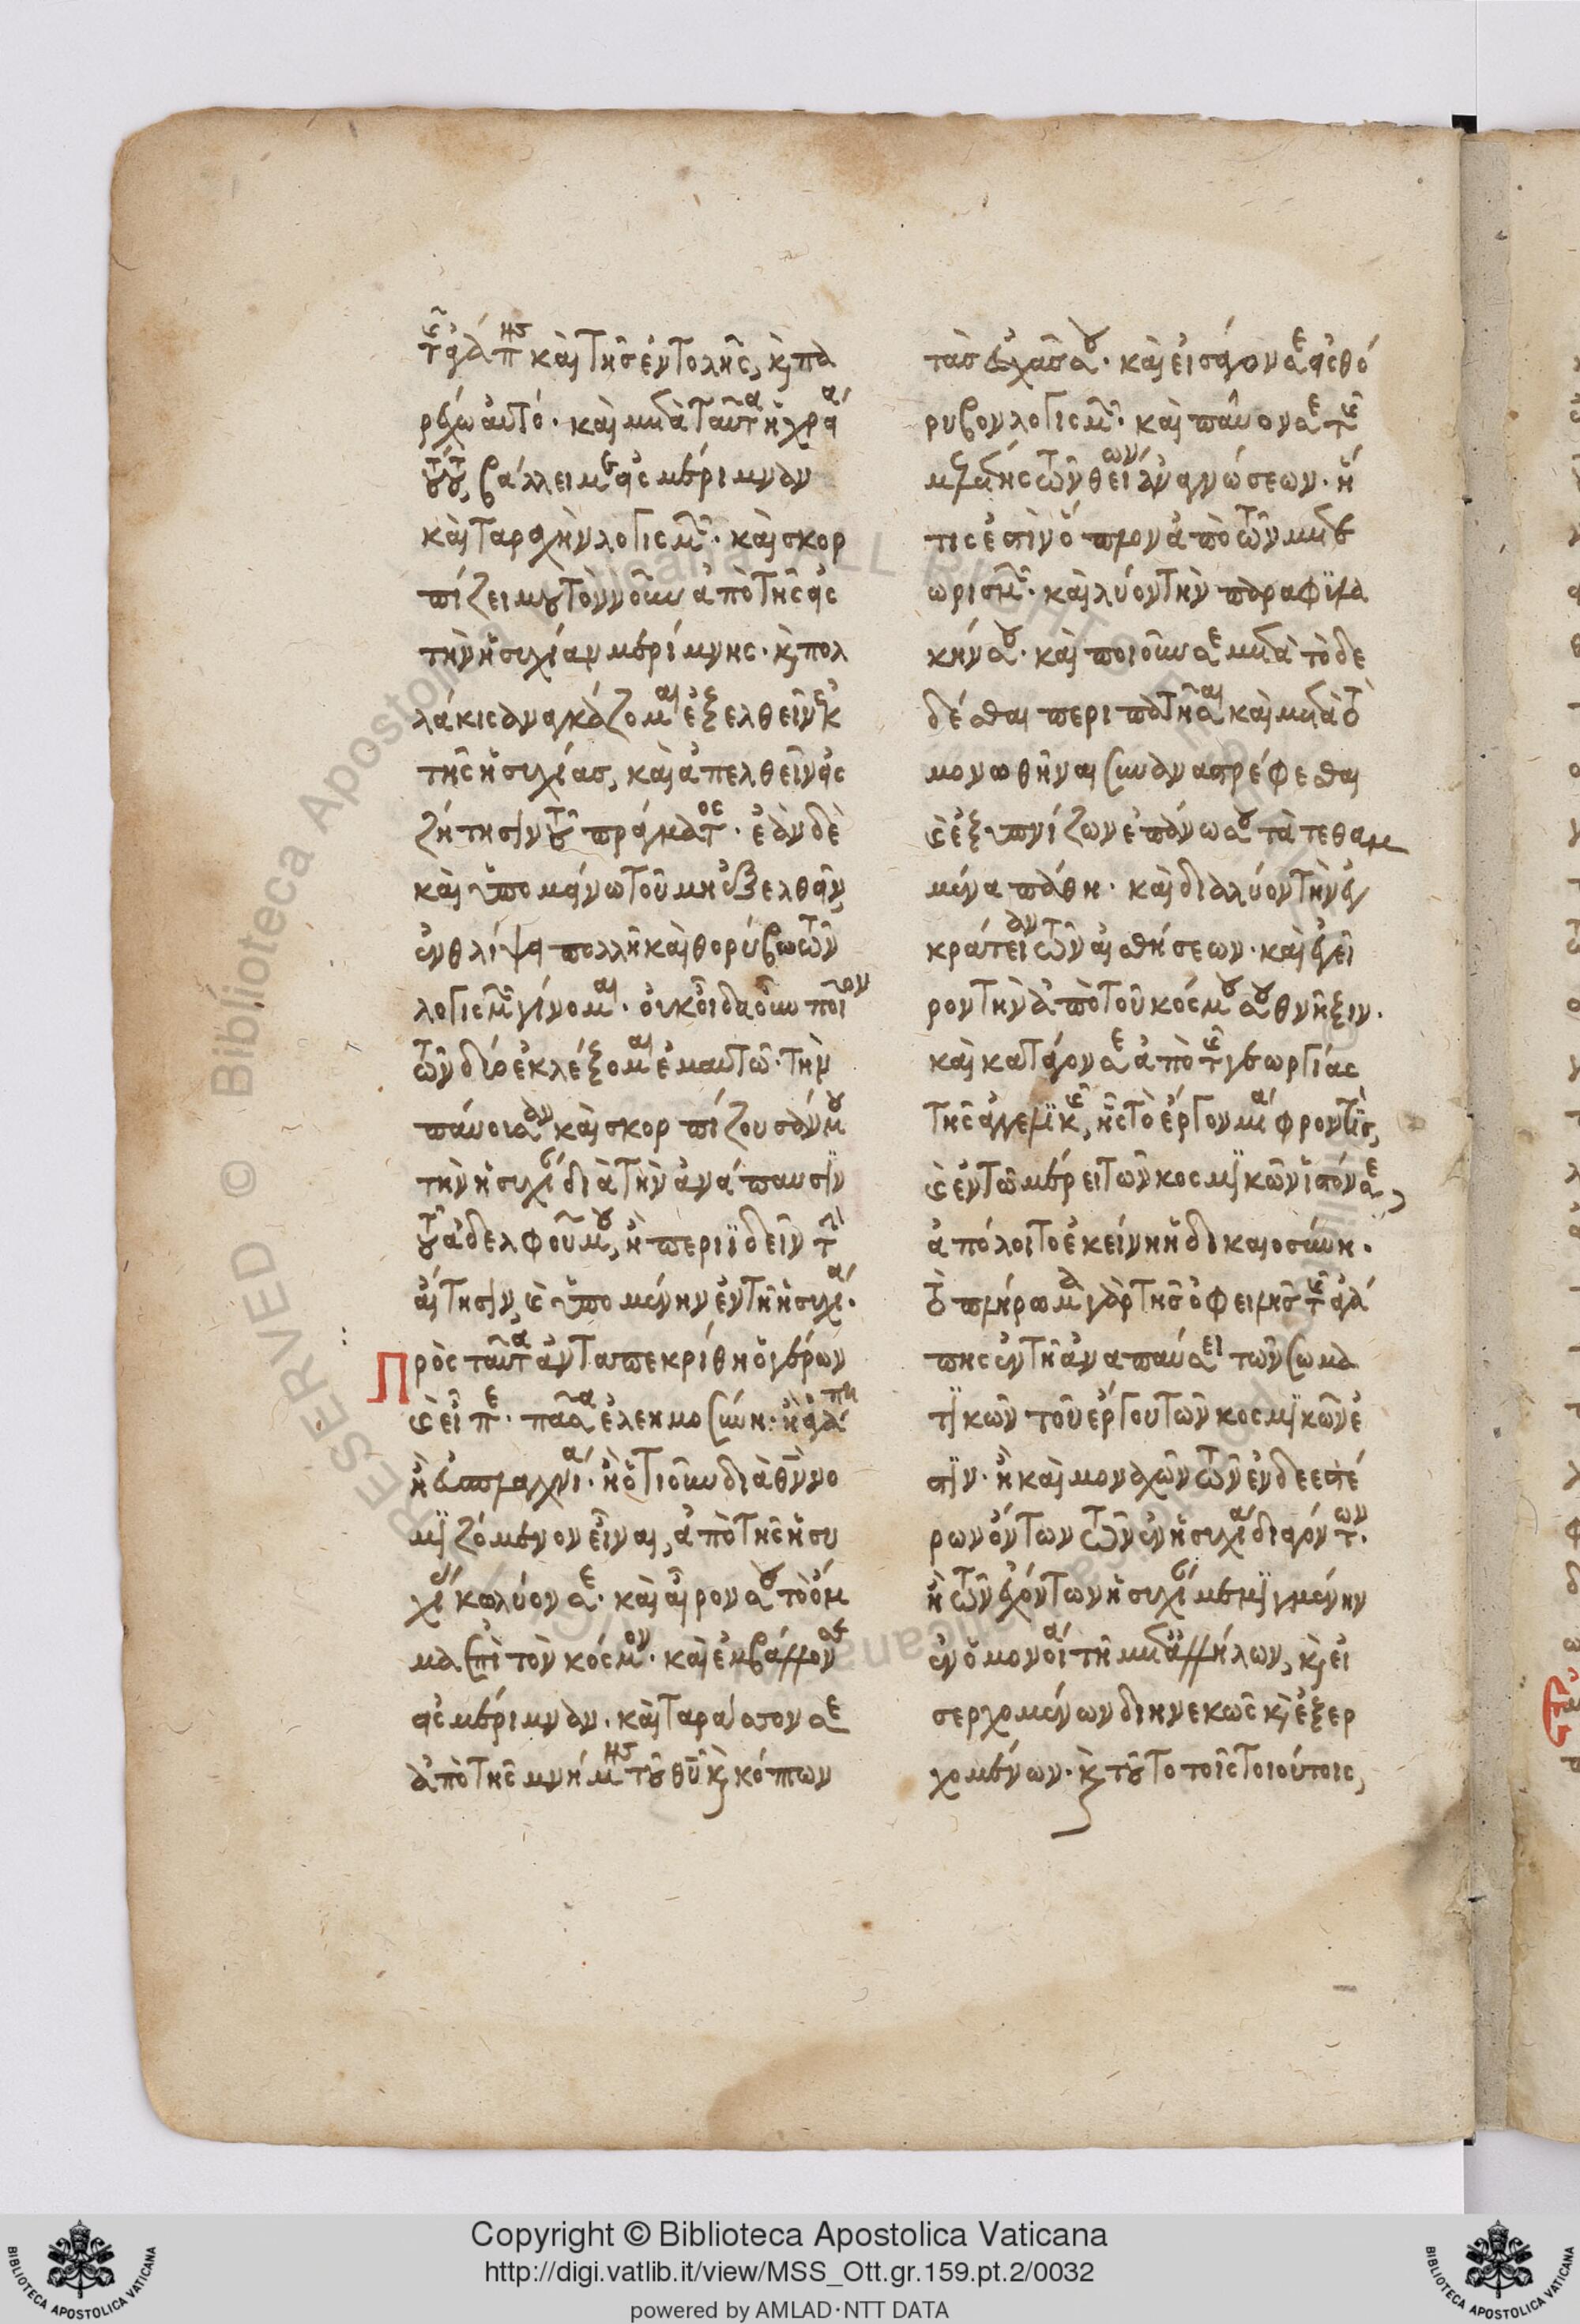 τῆς ἀγάπης καὶ τῆς ἐντολῆς, καὶ πα
ρέχω αὐτό· καὶ μετὰ ταῦτα ἡ χρεία
τούτου, βάλλει με εἰς μέριμναν
καὶ ταραχὴν λογισμῶν· καὶ σκορ
πίζει μου τὸν νοῦν ἀπὸ τῆς εἰς
τὴν ἡσυχίαν μερίμνης· καὶ πολ
λάκις ἀναγκάζομαι ἐξελθεῖν ἐκ
τῆς ἡσυχίας, καὶ ἀπελθεῖν εἰς
ζήτησιν τοῦ πράγματος· ἐὰν δὲ
καὶ ὑπομείνω τοῦ μὴ ἐξελθεῖν,
ἐν θλίψει πολλῇ καὶ θορύβῳ τῶν
λογισμῶν γίνομαι· οὐκ οἶδα οὖν ποῖον
τῶν δύο ἐκλέξομαι ἐμαυτῷ· τὴν
παύουσαν καὶ σκορπίζουσάν μου
τὴν ἡσυχίαν διὰ τὴν ἀνάπαυσιν
τοῦ ἀδελφοῦ μου, ἢ περιϊδεῖν τὴν
αἴτησιν, καὶ ὑπομένειν ἐν τῇ ἡσυχίᾳ·
Πρὸς ταῦτα ἀνταπεκρίθη ὁ γέρων
καὶ εἶπε· πᾶσα ἐλεημοσύνη· ἢ ἀγάπη
ἢ εὐσπλαγχνία· ἢ ὅτι οὖν διὰ θεὸν νο
μιζόμενον εἶναι, ἀπὸ τῆς ἡσυ
χίας κωλύον σε· καὶ αἶρον σου τὸ ὄμ
μα ἐπὶ τὸν κόσμον· καὶ ἐμβάλλον σε
εἰς μέριμναν· καὶ ταράσσον σε
ἀπὸ τῆς μνήμης τοῦ θεοῦ καὶ κόπτων
τὰς εὐχάς σου· καὶ εἰσάγον σε εἰς θό
ρυβον λογισμῶν· καὶ παῦον σε τῆς
μελέτης τῶν θείων ἀναγνώσεων· ἥ
τις ἐστὶν ὅπλον ἀπὸ τῶν μετε
ωρισμῶν· καὶ λύον τὴν παραφυλα
κήν σου· καὶ ποιοῦν σε μετὰ τὸ δε
δέσθαι περιπατῆσαι καὶ μετὰ τὸ
μονωθῆναι συναναστρέφεσθαι
καὶ ἐξυπνίζων ἐπάνω σου τὰ τεθαμ
μένα πάθη· καὶ διαλύον τὴν ἐγ
κράτειαν τῶν αἰσθήσεων· καὶ ἐγεῖ
ρον τὴν ἀπὸ τοῦ κόσμου σου θνῆξιν·
καὶ κατάγον σε ἀπὸ τῆς γεωργίας
τῆς ἀγγελικῆς, ἧς τὸ ἔργον μία φροντίς,
καὶ ἐν τῷ μέρει τῶν κοσμικῶν ἱστόν σε,
ἀπόλοιτο ἐκείνη ἡ δικαιοσύνη·
τὸ πλήρωμα γὰρ τῆς ὀφειλῆς τῆς ἀγά
πης ἐν τῇ ἀναπαύσει τῶν σωμα
τικῶν τοῦ ἔργου τῶν κοσμικῶν ἐ
στιν· ἢ καὶ μοναχῶν τῶν ἐνδεεστέ
ρων ὄντων τῶν ἐν ἡσυχίᾳ διαγόντων·
ἢ τῶν ἐχόντων ἡσυχίαν μεμιγμένην
ἐν ὁμονοίᾳ τῇ μετ' ἀλλήλων, καὶ εἰ
σερχομένων διηνεκῶς καὶ ἐξερ
χομένων· καὶ τοῦτο τοῖς τοιούτοις,
Copyright © Biblioteca Apostolica Vaticana
http://digi.vatlib.it/view/MSS_Ott.gr.159.pt.2/0032
powered by AMLAD·NTT DATA